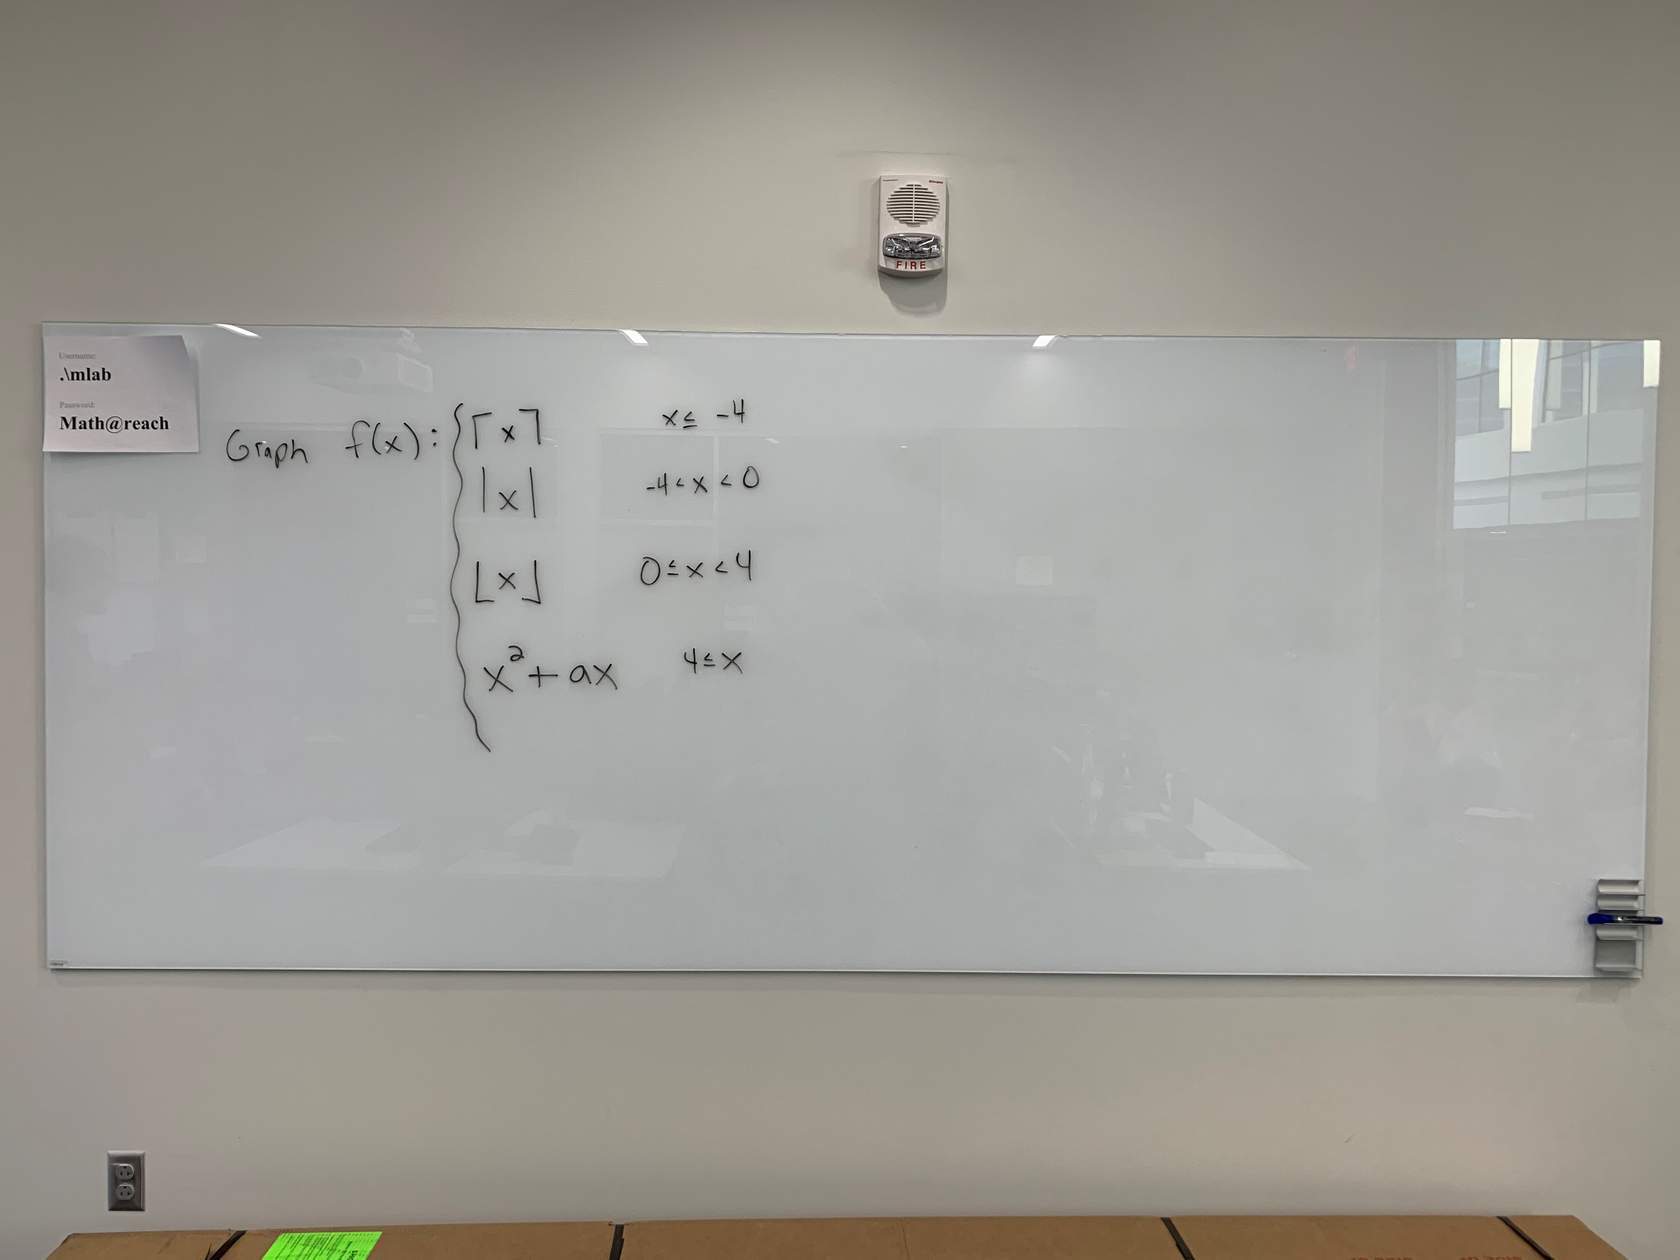 FIRE
Username:
.\mlab
Password:
Math@reach
Graph f(x): { ⌈x⌉ x ≤ -4
|x| -4 < x < 0
⌊x⌋ 0 ≤ x < 4
x² + ax 4 ≤ x